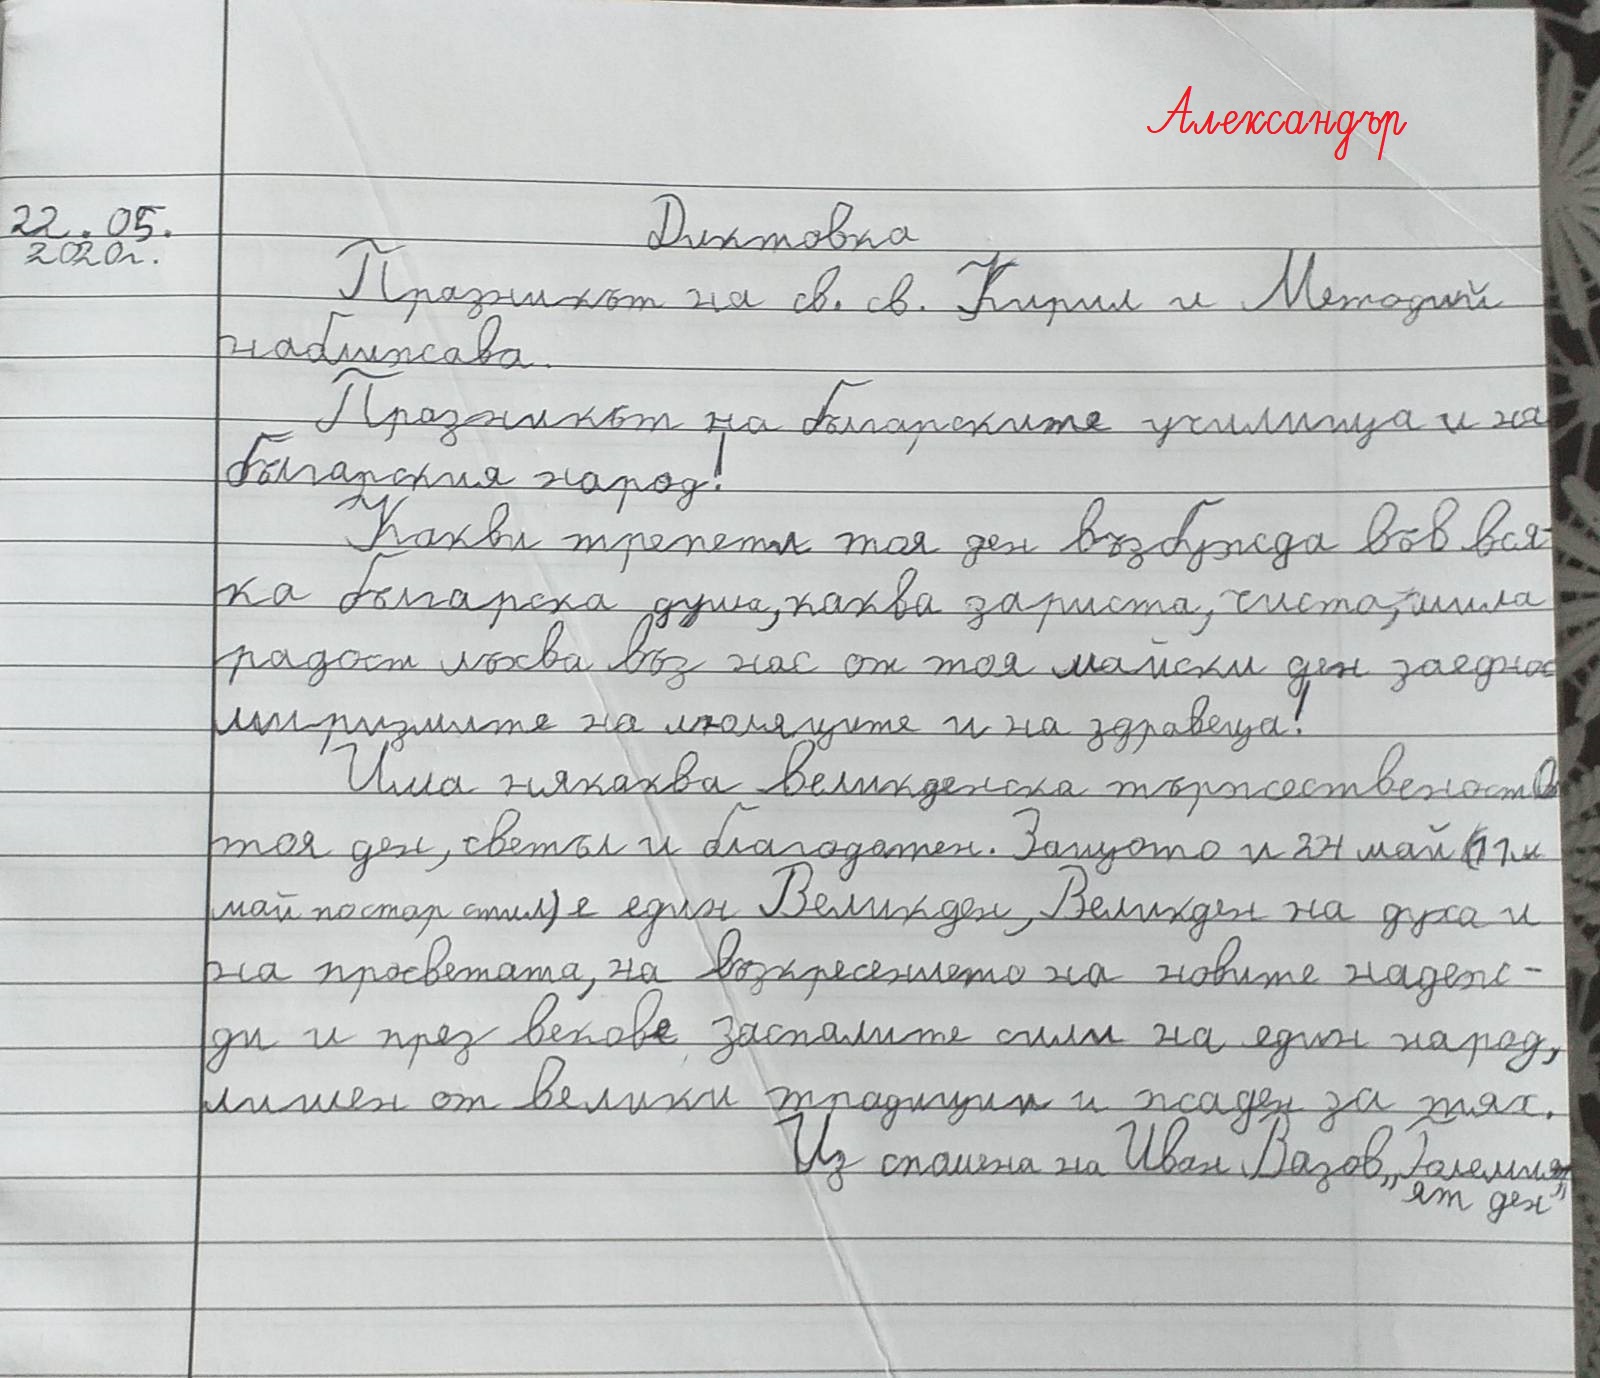 Александър
22.05.
2020г.
Диктовка
Празникът на св. св. Кирил и Методий
наближава.
Празникът на българските училища и на
българския народ!
Какви трепети тоя ден възбужда във вся-
ка българска душа, каква зариста, чиста, мила
радост лъхва въз нас от тоя майски ден заеднос
миризмите на люляците и на здравеца!
Има някаква великденска тържественост в
тоя ден, светъл и благодатен. Защото и 24 май (11и
май постар стил) е един Великден, Великден на духа и
на просветата, на възкресението на новите надеж-
ди и през векове заспалите сили на един народ,
лишен от велики традиции и жаден за тях.
Из спомена на Иван Вазов „Големия
ят ден"